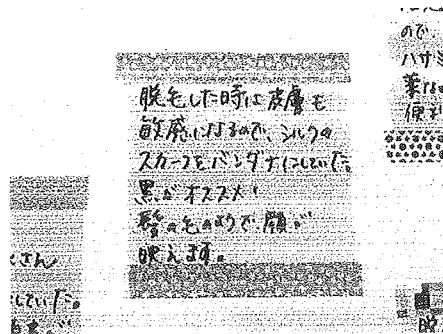 脱毛した時は皮膚も
敏感になるので、シルクの
スカーフをバンダナにしていた。
黒がオススメ!
髪の毛のようで顔が
映えます。
ので
ハサミ
さん
していた。